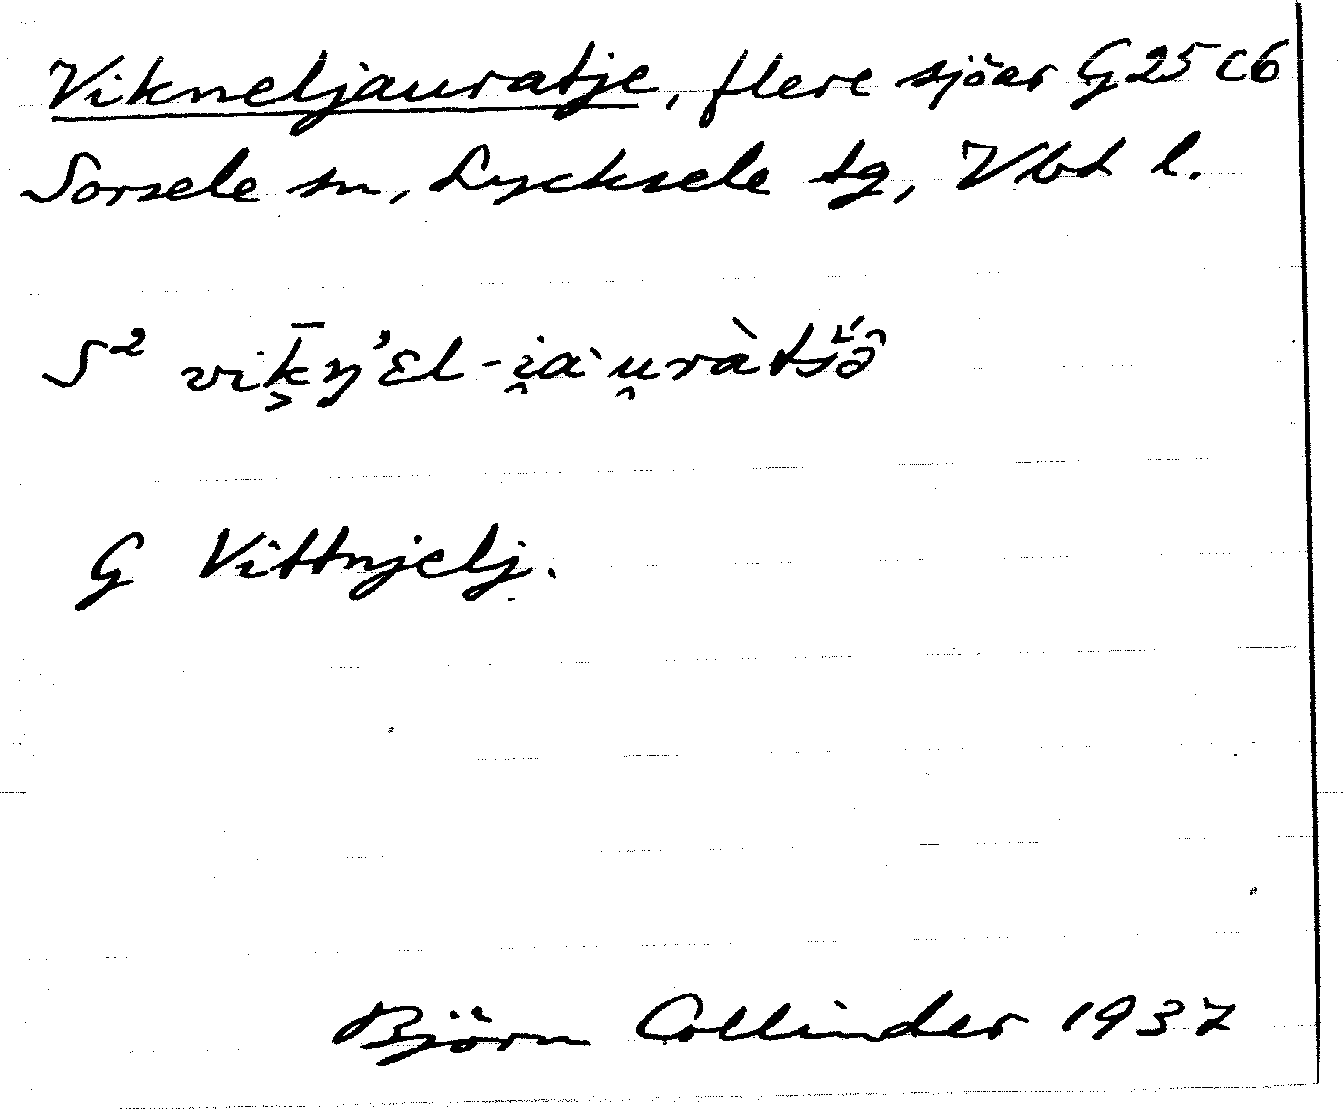 Vikneljauratje, flere sjöar G 25 C6
Sorsele sn, Lycksele tg, Vbt l.
S² vik̬̄ŋ’εl-i̯a`u̯ràtš́ə̑
G Vittnjelj.
Björn Collinder 1937